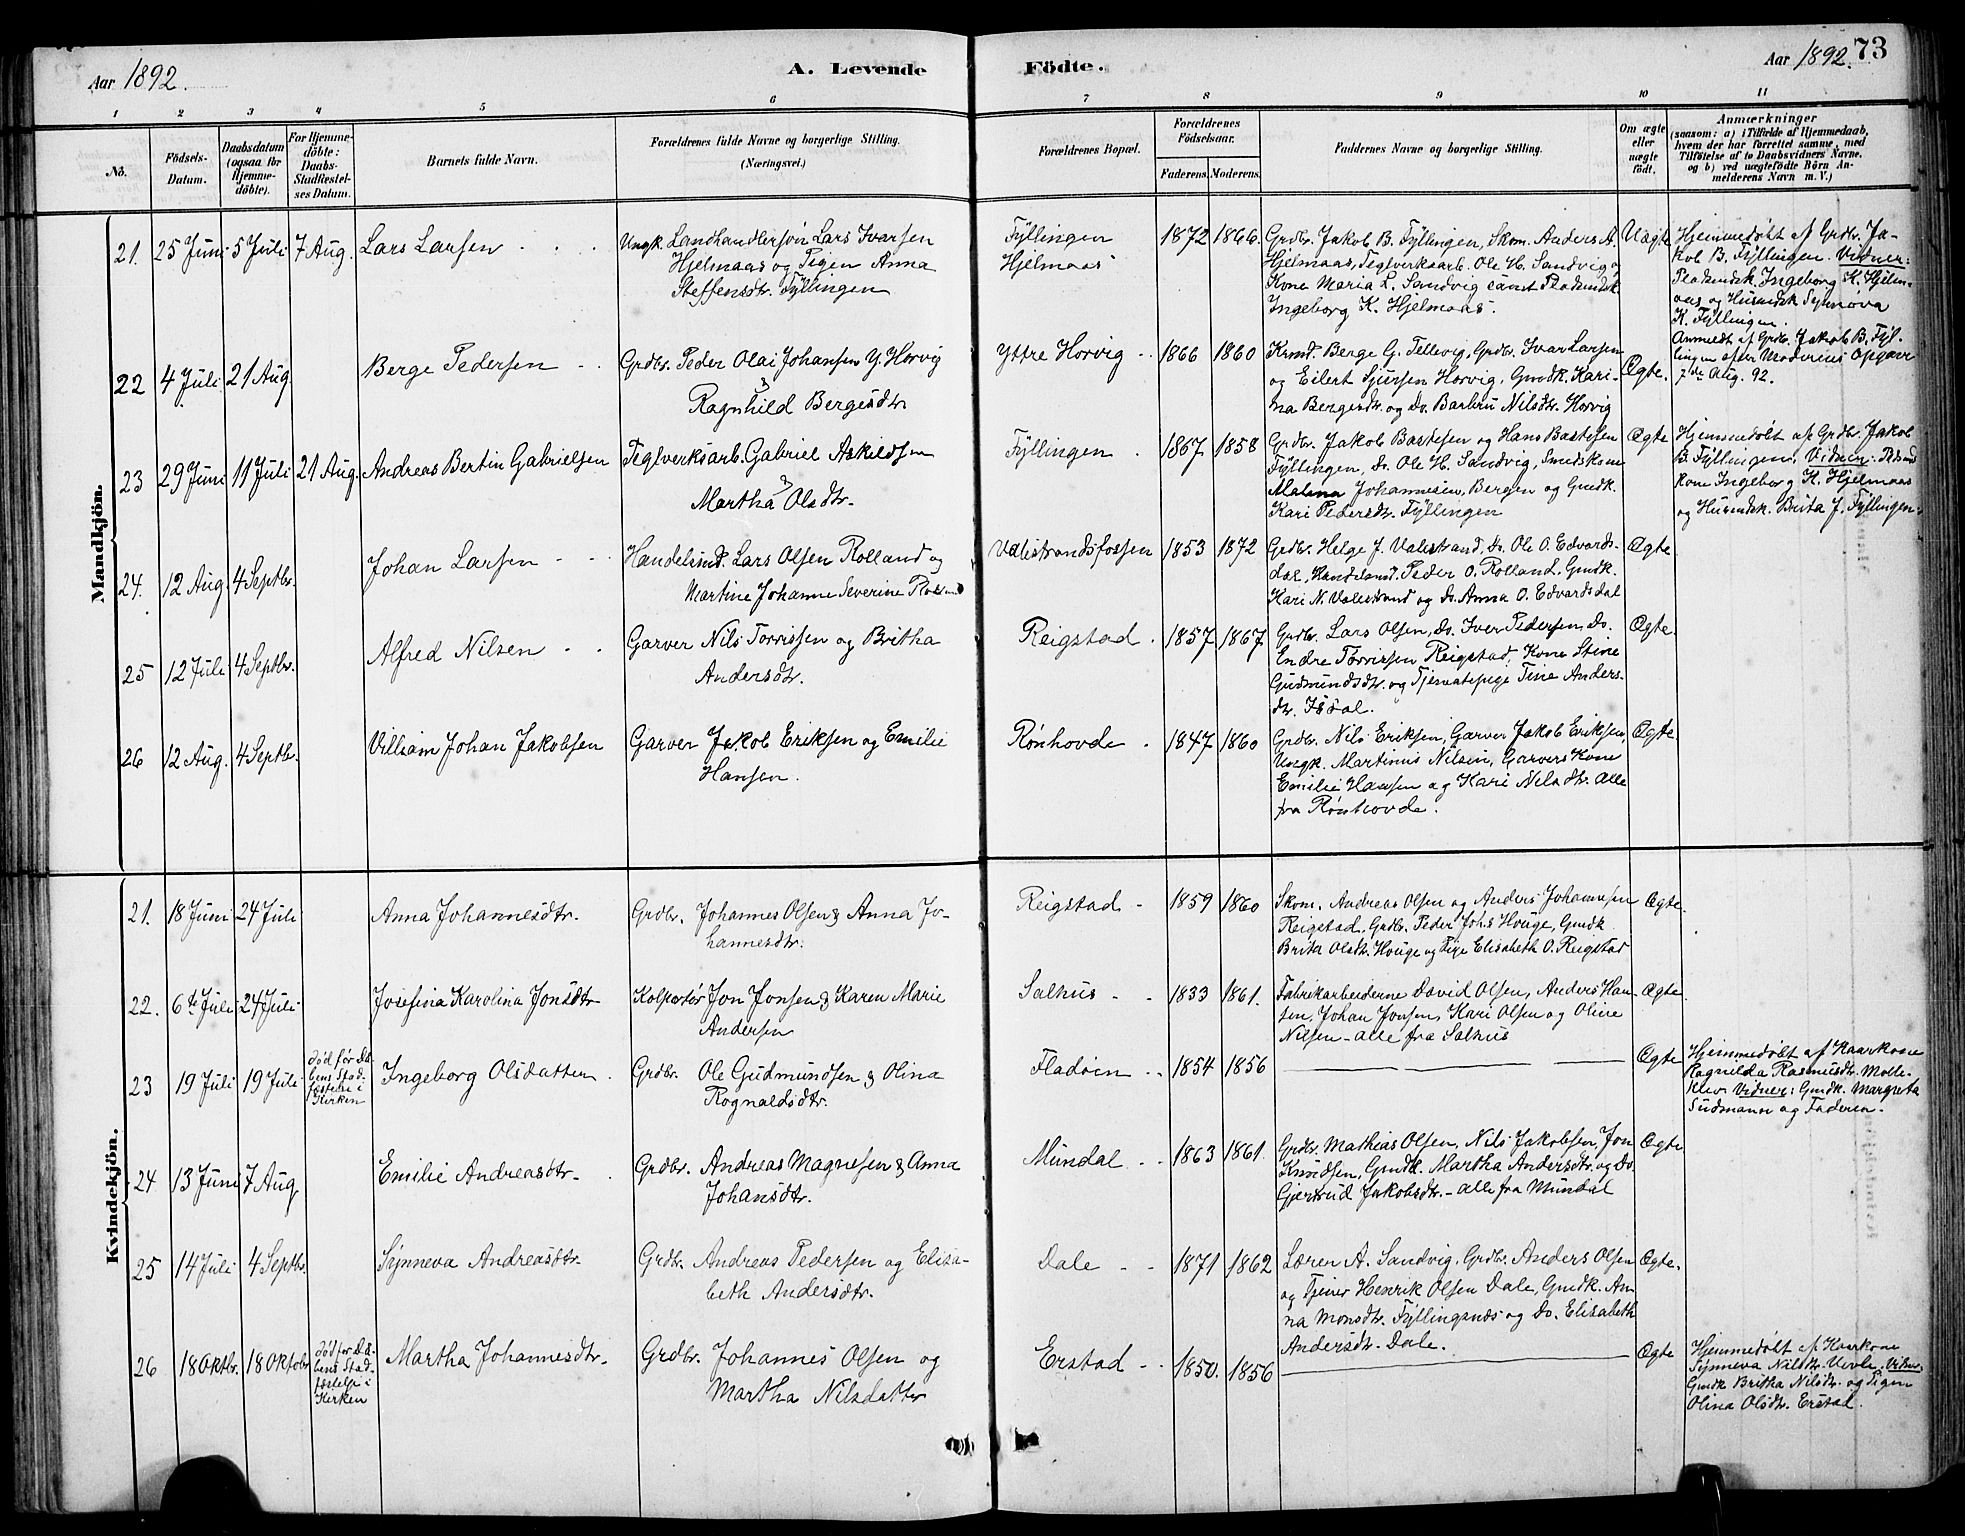 Aar 1892.
A. Levende Födte.
Aar 1892.
73
1 2 3 4 5 6 7 8 9 10 11
No.
Födsels-
Datum.
Daabsdatum
(ogsaa for
Hjemme-
döbte).
For Hjemme-
döbte:
Daabs-
Stadfæstel-
ses Datum.
Barnets fulde Navn.
Forældrenes fulde Navne og borgerlige Stilling.
(Næringsvei.)
Forældrenes Bopæl.
Forældrenes
Födselsaar.
Faderens. Moderens.
Faddernes Navne og borgerlige Stilling.
Om ægte
eller
uægte
födt.
Anmærkninger
(saasom: a) i Tilfælde af Hjemmedaab,
hvem der har forrettet samme, med
Tilföielse af to Daabsvidners Navne.
og b) ved uægtefödte Börn An-
melderens Navn m. V.)
Mandkjön.
21. 25 Juni 5 Juli 7 Aug. Lars Larsen
Ungk. Landhandlersøn Lars Ivarsen
Hjelmaas og Pigen Anna
Steffensdtr. Fÿllingen
Fÿllingen
Hjelmaas
1872 1866.
Grdbr. Jakob B. Fÿllingen, Skom. Anders A.
Hjelmaas, Teglverksarb. Ole H. Sandvig og
Kone Maria L. Sandvig samt Pladsmdsk.
Ingeborg K. Hjelmaas.
Uægte
Hjemmedøbt af Grdbr. Ja-
kob B. Fÿllingen. Vidner:
Pladsmdsk. Ingeborg K. Hjelm-
aas og Husmdsk Synnøva
K. Fÿllingen.
Anmeldt af Grdb. Jakob B. Fÿl-
lingen efter Moderens Opgave
7de Aug. 92.
22 4 Juli 21 Aug Berge Pedersen
Grdbr. Peder Olai Johansen Y. Horvig
&
Ragnhild Bergesdtr
Yttre Horvig
1866 1860
Krmd. Berge G. Tellevig, Grdbr. Ivar Larsen
og Eilert Sjursen Horvig, Gmdk. Kari-
na Bergesdtr. og Do. Barbru Nilsdtr. Horvig
Ægte.
23 29 Juni 11 Juli 21 Aug. Andreas Bertin Gabrielsen
Teglverksarb. Gabriel Askildsen
&
Martha Olsdtr.
Fÿllingen
1867 1858
Grdbr. Jakob Bastesen og Hans Bastesen
Fÿllingen, Do. Ole H. Sandvig, Smedskone
Malena Johannesen, Bergen og Gmdk.
Kari Pedersdtr. Fÿllingen
Ægte
Hjemmedøbt af Grdbr. Jakob
B. Fÿllingen, Vidner: Pladsmd
kone Ingeborg K. Hjelmaas
og Husmdsk. Brita J. Fÿllingen.
24. 12 Aug. 4 Septbr. Johan Larsen
Handelsmd. Lars Olsen Rolland og
Martine Johanne Severine
Valestrandsfossen
1853 1872
Grdbr. Helge J. Valestrand, Do. Ole O. Edvards-
dal, Handelsmd. Peder O. Rolland, Gmdk.
Kari N. Valestrand og Do. Anna O. Edvardsdal
Ægte
25 12 Juli 4 Septbr. Alfred Nilsen
Garver Nils Torrissen og Britha
Andersdtr.
Reigstad
1857 1867
Grdbr. Lars Olsen, Do. Iver Pedersen, Do.
Endre Torrissen Reigstad, Kone Stine
Gudmundsdtr. og Tjenestepige Tine Anders-
dtr. Isdal.
Ægte.
26 12 Aug. 4 Septbr. Villiam Johan Jakobsen
Garver Jakob Eriksen og Emilie
Hansen.
Rønhovde
1847 1860
Grdbr. Nils Eriksen, Garver Jakob Eriksen,
Ungk. Martinus Nilsen, Garvers Kone
Emilie Hansen og Kari Nilsdtr. alle
fra Rønhovde.
Ægte.
Kvindekjön.
21. 18 Juni 24 Juli Anna Johannesdtr.
Grdbr. Johannes Olsen & Anna Jo-
hannesdtr.
Reigstad
1859 1860
Skom. Andreas Olsen og Anders Johannesen
Reigstad, Grdbr. Peder Johs Houge, Gmdk.
Brita Olsdtr. Houge og Pige Elisabeth O. Reigstad
Ægte.
22. 6te Juli 24 Juli Josefina Karolina Jonsdtr
Kolportør Jon Jonsen & Karen Marie
Andersen
Salhus
1833 1861.
Fabrikarbeiderne David Olsen, Anders Han-
sen, Johan Jonsen, Kari Olsen og Oline
Nilsen - alle fra Salhus
Ægte.
23 19 Juli 19 Juli
død før Daa-
bens Stad-
fæstelse i
Kirken
Ingeborg Olsdatter
Grdbr. Ole Gudmundsen & Olina
Rognaldsdtr.
Fladøen
1854 1856
Ægte
Hjemmedøbt af Kaarkone
Ragnilda Rasmusdtr. Molle-
klev. Vidner: Gmdk. Margreta
Sudmann og Faderen.
24 13 Juni 7 Aug Emilie Andreasdtr.
Grdbr. Andreas Magnesen & Anna
Johansdtr.
Mundal
1863 1861.
Grdbr. Mathias Olsen, Nils Jakobsen, Jon
Knudsen, Gmdk. Martha Andersdtr. og Do.
Gjertrud Jakobsdtr. - alle fra Mundal
Ægte
25 14 Juli 4 Septbr. Sÿnneva Andreasdtr.
Grdbr. Andreas Pedersen og Elisa-
beth Andersdtr.
Dale
1871 1862
Lærer A. Sandvig, Grdbr. Anders Olsen
og Tjener Henrik Olsen Dale, Gmdk. An-
na Monsdtr. Fÿllingsnes og Do. Elisabeth
Andersdtr. Dale.
Ægte.
26 18 Oktbr. 18 Oktober
død før Daa-
bens Stad-
fæstelse i
Kirken
Martha Johannesdtr.
Grdbr. Johannes Olsen og
Martha Nilsdatter
Erstad
1850. 1856
Ægte
Hjemmedøbt af Kaarkone
Sÿnneva Nilsdtr. Vidner
Gmdk Britha Nilsdtr. og Pigen
Olina Olsdtr. Erstad.